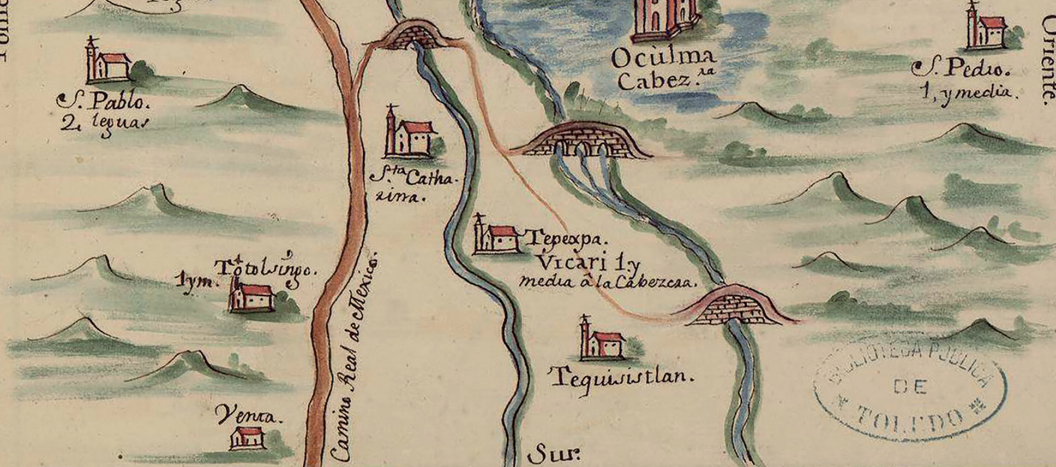 Ocùlma
Cabez.ra
S. Pedro.
1, y media.
Oriente.
S. Pablo.
2, leguas
S.ta Catha-
rina.
Tepexpa.
Vicari 1 y
media â la Cabezera.
Totolsingo.
1 y m.
Camino Real de Mexico.
Tequisistlan.
Venta.
Sur.
BIBLIOTECA PUBLICA
DE
TOLEDO